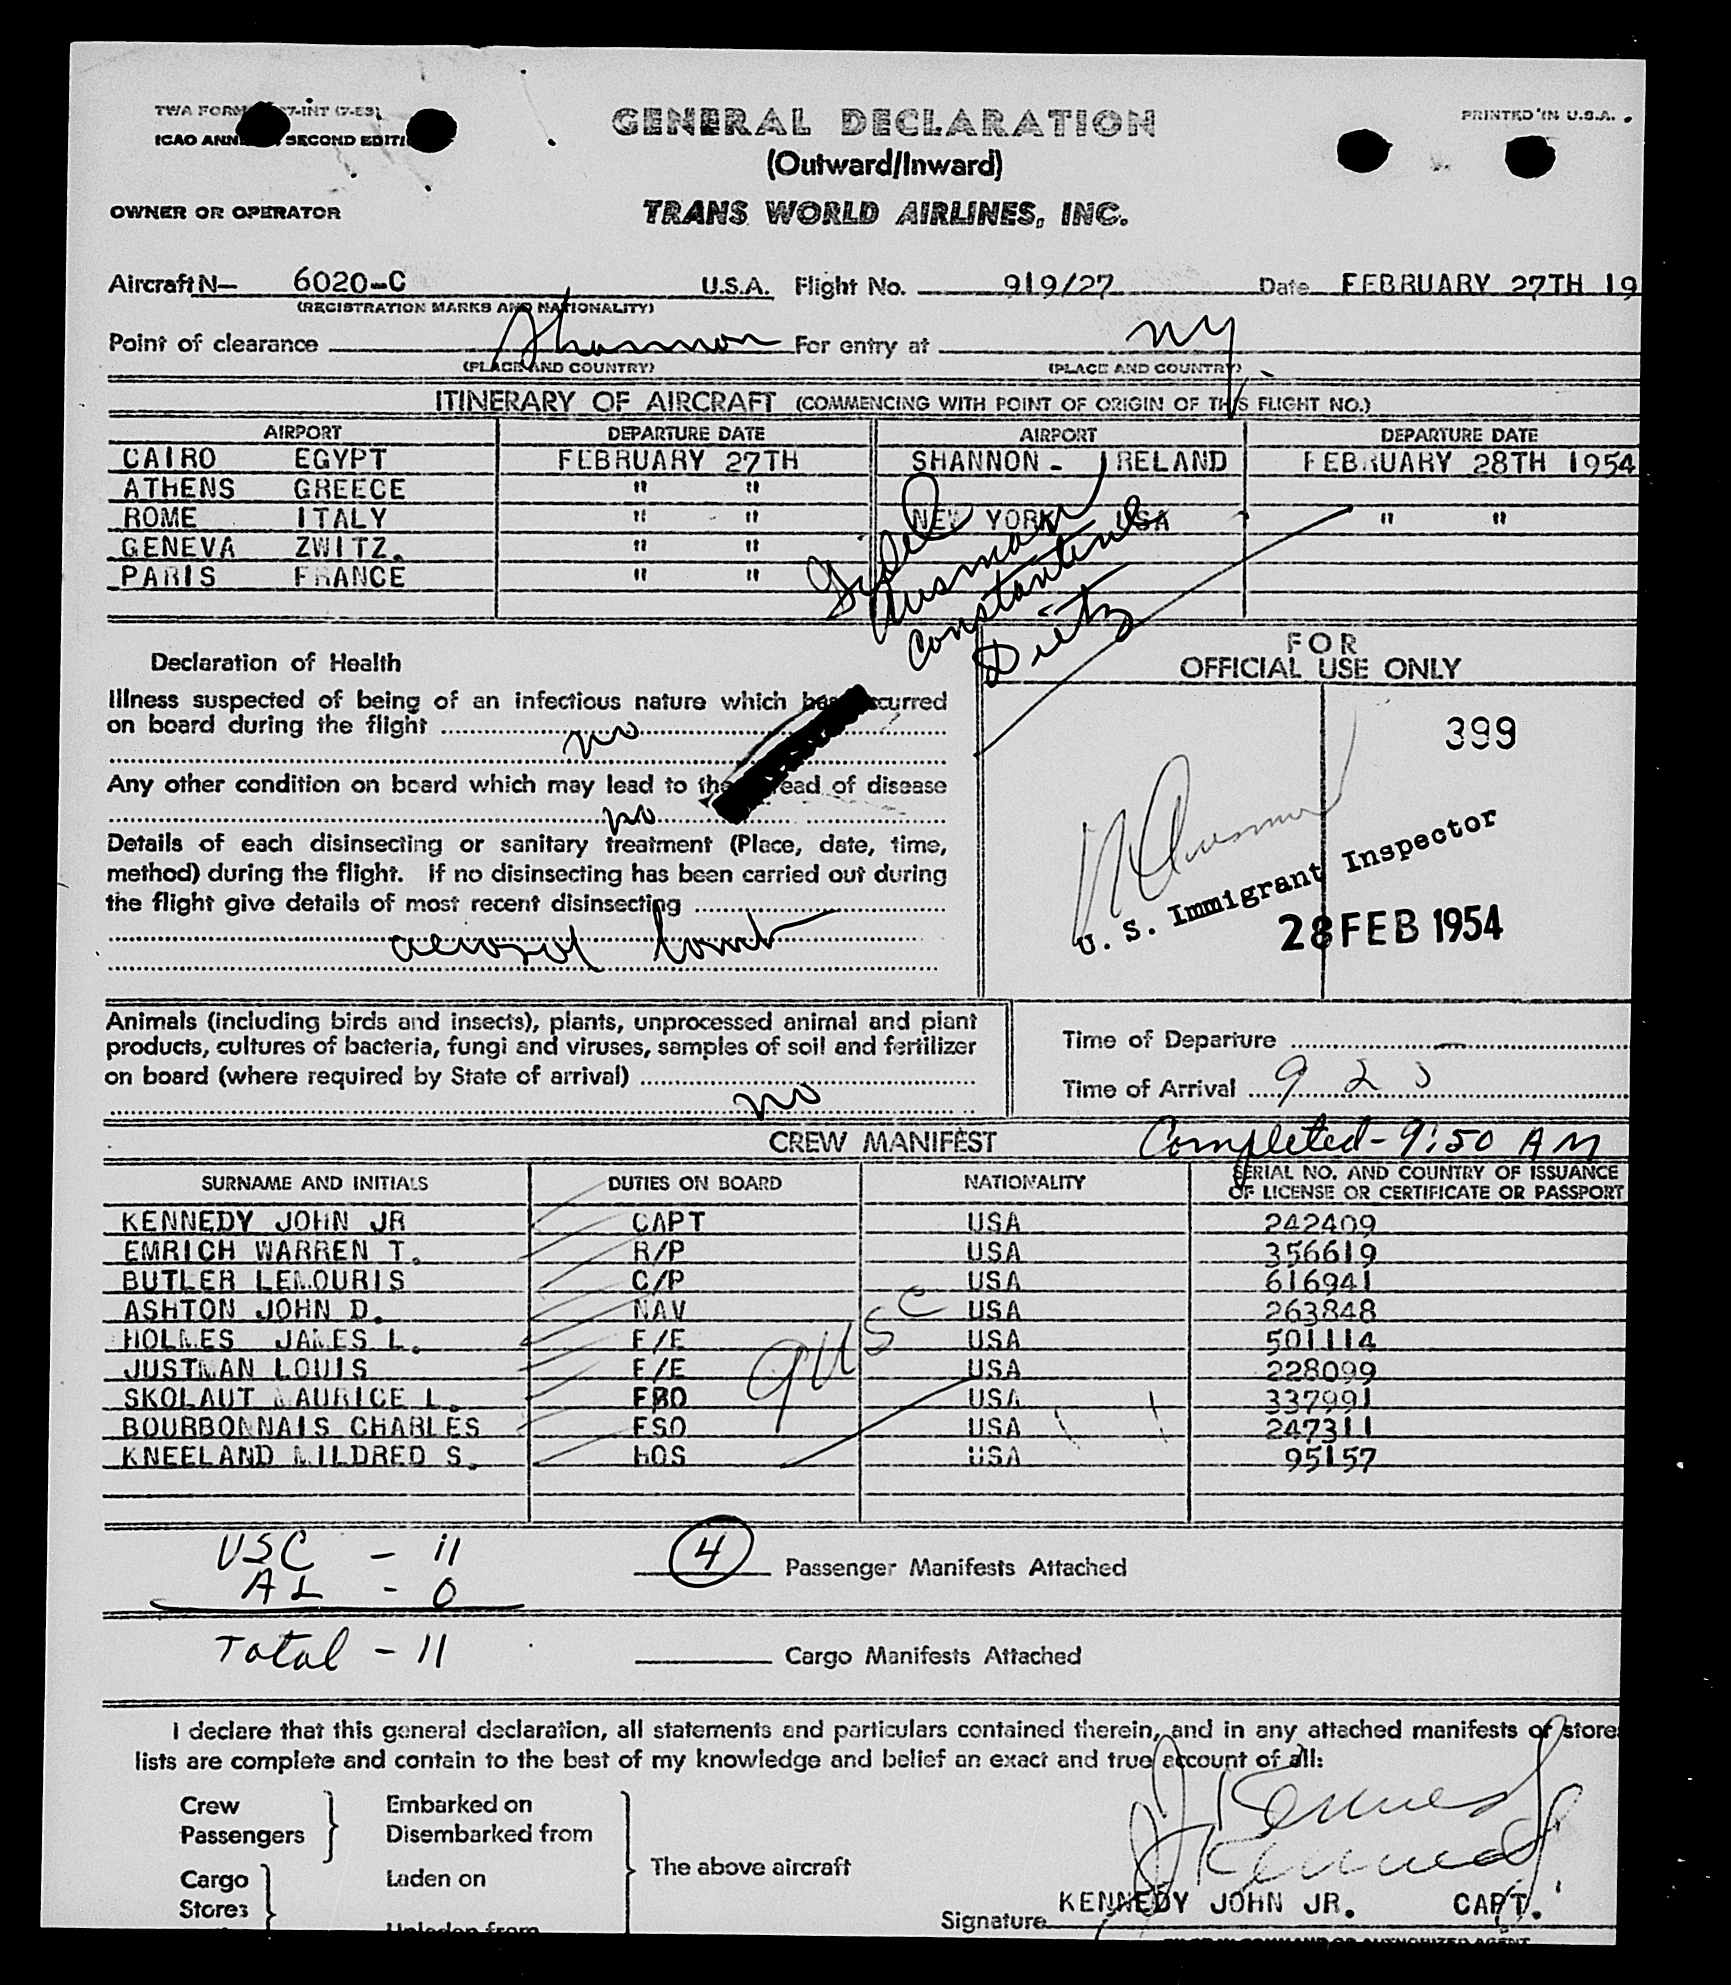 TWA FORM 7-INT (7-53)
ICAO ANN SECOND EDITI
GENERAL DECLARATION
PRINTED IN U.S.A.
(Outward/Inward)
OWNER OR OPERATOR
TRANS WORLD AIRLINES, INC.
Aircraft N— 6020-C U.S.A. Flight No. 919/27 Date FEBRUARY 27TH 19
(REGISTRATION MARKS AND NATIONALITY)
Point of clearance Shannon For entry at NY
(PLACE AND COUNTRY) (PLACE AND COUNTRY)
ITINERARY OF AIRCRAFT (COMMENCING WITH POINT OF ORIGIN OF THIS FLIGHT NO.)
AIRPORT DEPARTURE DATE AIRPORT DEPARTURE DATE
CAIRO EGYPT FEBRUARY 27TH SHANNON - IRELAND FEBRUARY 28TH 1954
ATHENS GREECE " "
ROME ITALY " " NEW YORK USA " "
GENEVA ZWITZ. " "
PARIS FRANCE " "
Constantine
Dietz
Declaration of Health
FOR
OFFICIAL USE ONLY
Illness suspected of being of an infectious nature which has occurred
on board during the flight no
399
Any other condition on board which may lead to the spread of disease
no
Details of each disinsecting or sanitary treatment (Place, date, time,
method) during the flight. If no disinsecting has been carried out during
the flight give details of most recent disinsecting
aerosol bomb
U.S. Immigrant Inspector
28 FEB 1954
Animals (including birds and insects), plants, unprocessed animal and plant
products, cultures of bacteria, fungi and viruses, samples of soil and fertilizer
on board (where required by State of arrival)
no
Time of Departure —
Time of Arrival 9 2
CREW MANIFEST Completed - 9:50 AM
SURNAME AND INITIALS DUTIES ON BOARD NATIONALITY SERIAL NO. AND COUNTRY OF ISSUANCE
OF LICENSE OR CERTIFICATE OR PASSPORT
KENNEDY JOHN JR CAPT USA 242409
EMRICH WARREN T. R/P USA 356619
BUTLER LEMOURIS C/P USA 616941
ASHTON JOHN D. NAV USA 263848
HOLMES JAMES L. F/E USA 501114
JUSTMAN LOUIS F/E USA 228099
SKOLAUT MAURICE L. FRO USA 337991
BOURBONNAIS CHARLES FSO USA 247311
KNEELAND MILDRED S. HOS USA 95157
9 USC
USC - 11
AL - 0
4 Passenger Manifests Attached
Total - 11
Cargo Manifests Attached
I declare that this general declaration, all statements and particulars contained therein, and in any attached manifests or store
lists are complete and contain to the best of my knowledge and belief an exact and true account of all:
Crew
Passengers
Embarked on
Disembarked from
Cargo
Stores
Laden on
Unladen from
The above aircraft
J Kennedy
J Kennedy
Signature KENNEDY JOHN JR. CAPT.